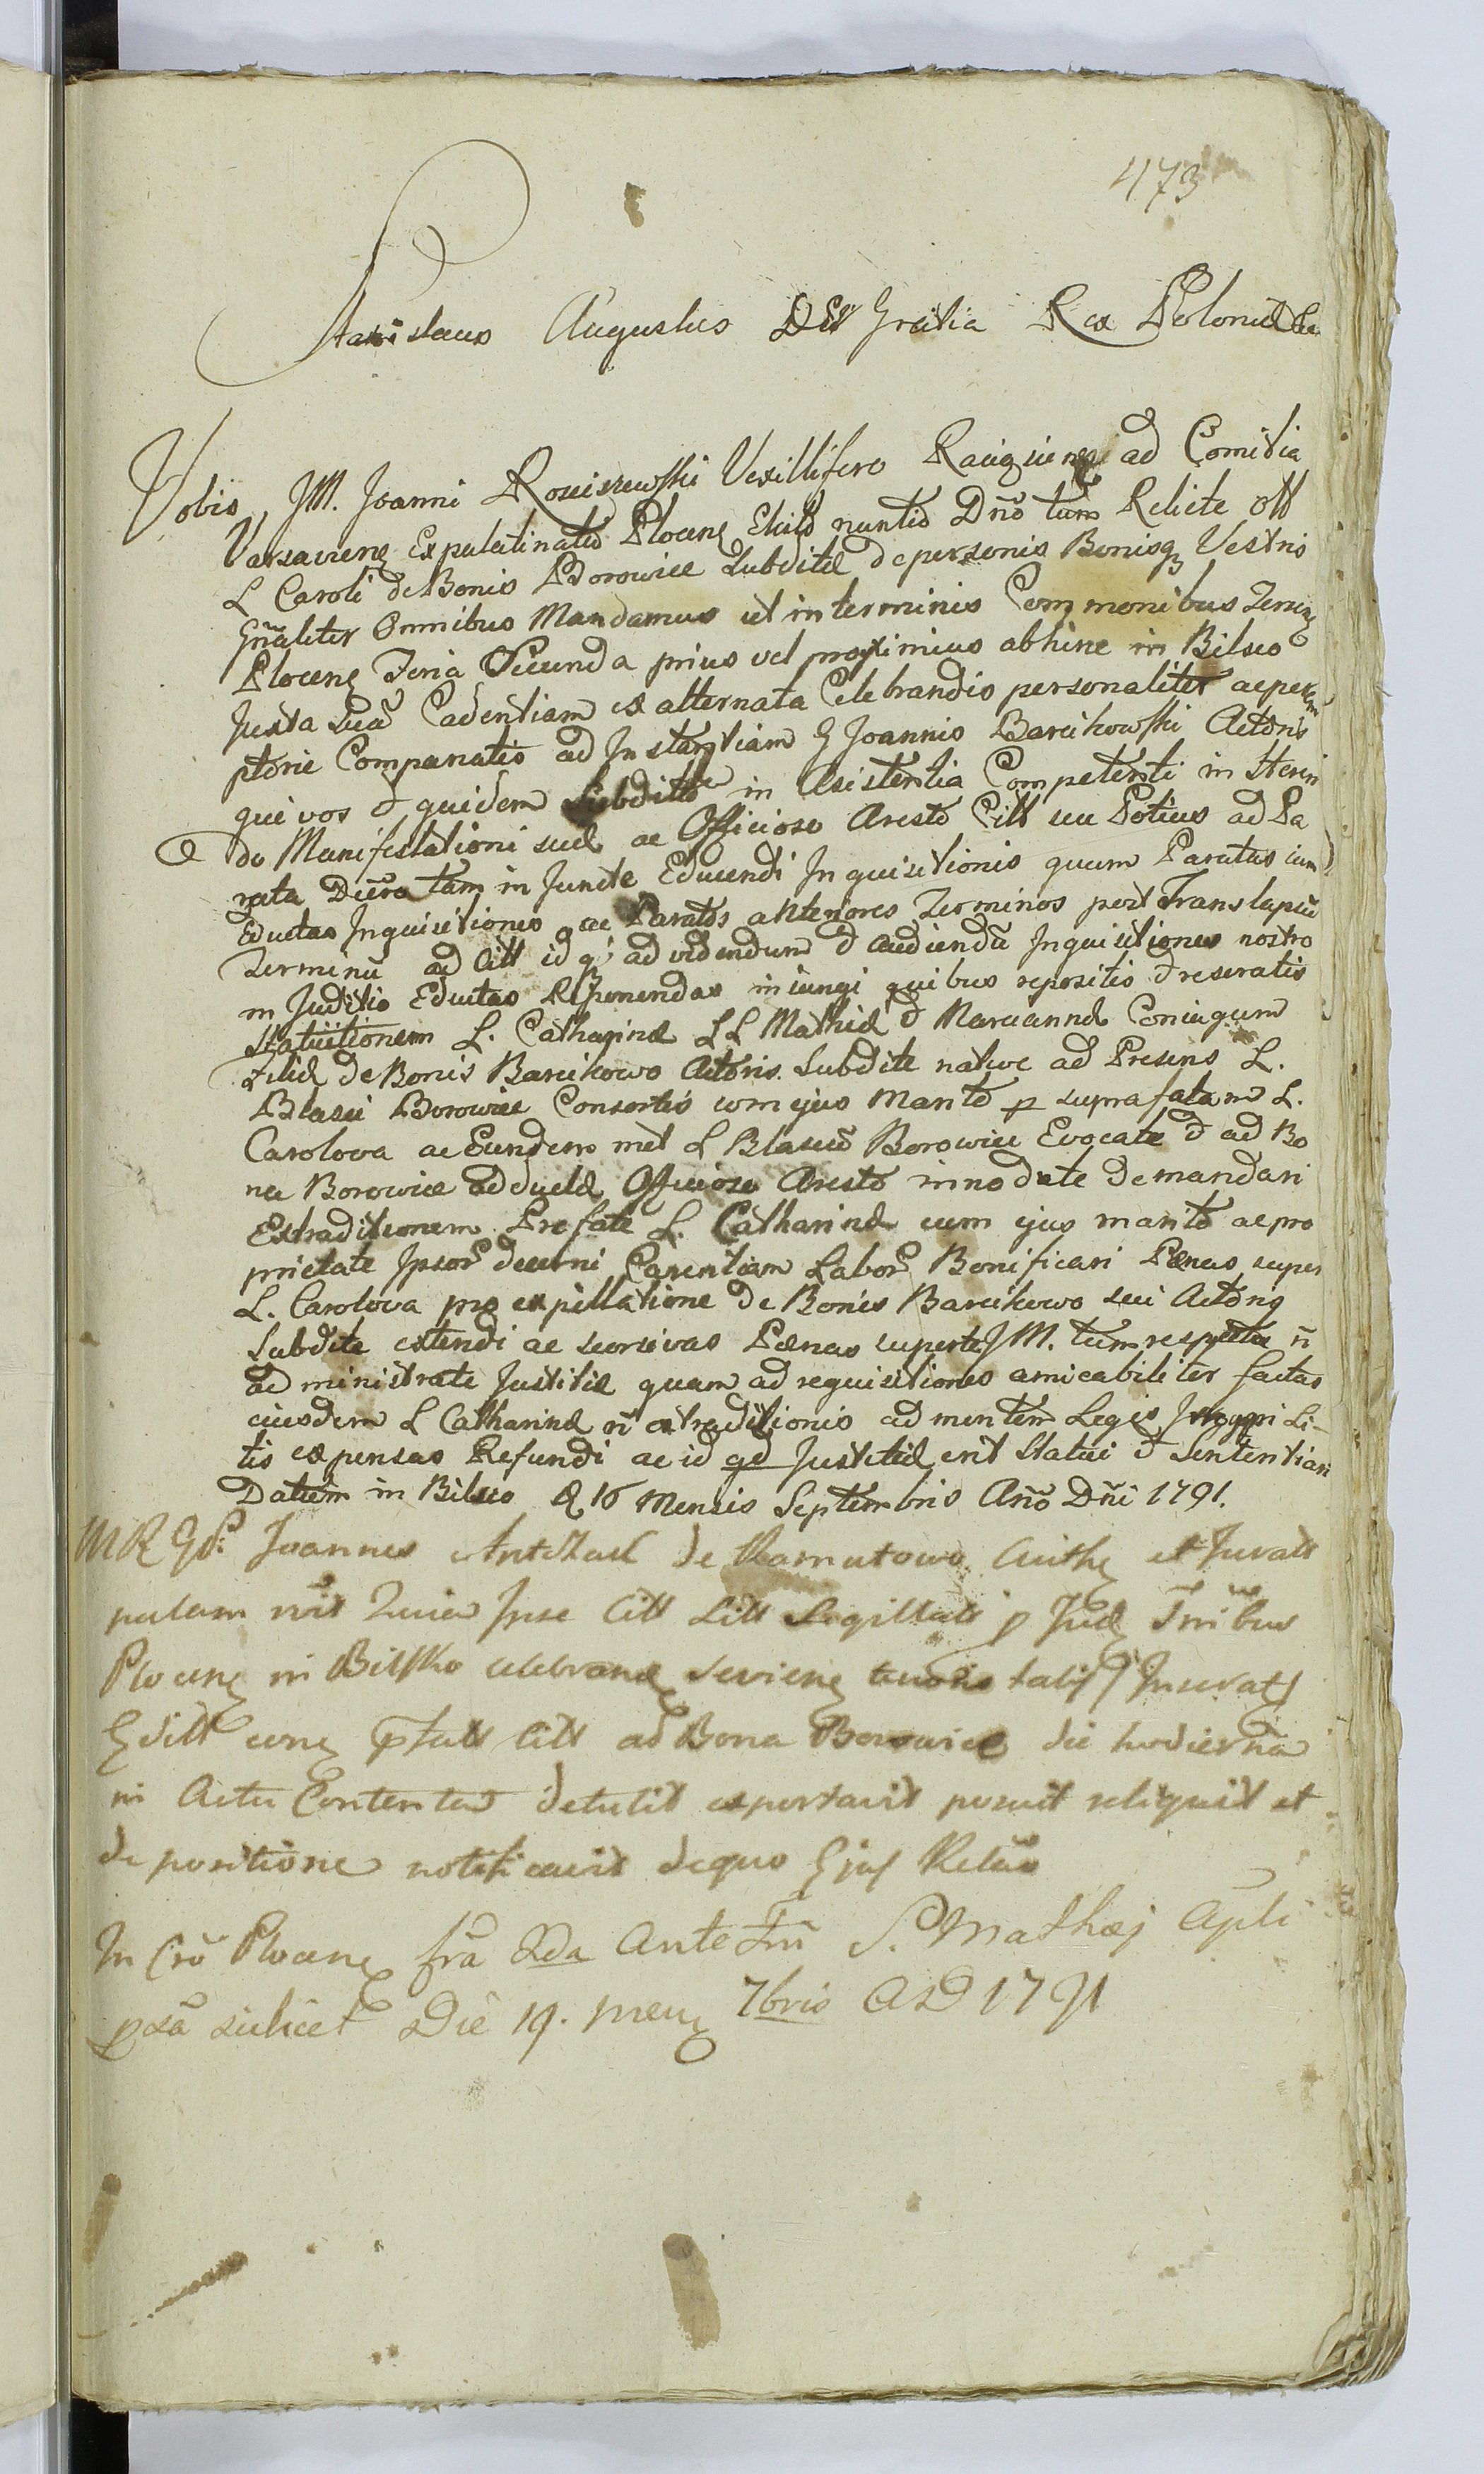 473
Stanislaus Augustus Dei Gratia Rex Poloniæ &c
Vobis JM. Joanni Rosciszewski Vexillifero ad Comitia
Varsaviens Expalatinatu Plocens Electo nuntio Dño tum Relicte olt
L Caroli de Bonis Borowice Subditæ de personis Bonisq Vestris
Gñaliter Omnibus Mandamus ut in terminis Com monibus Terrz
Plocens Feria Secunda prius vel proximius abhinc in Bilsco
Juxta Suã Cadentiam ex alternata Celebrandis personaliter ac perem
ptorie Compareatis ad Instantiam G Joannis Barcikowski Actoris
qui vos et quidem Subditte in Asistentia Competenti in
do Manifestationi suæ ac Officioso Aresto Citt seu Potius ad Pa
rata tam in Juncte Educendi Inquisitionis quam Paratas iam
Eductas Inquisitiones ac Paratos anteriores Terminos post Translapsũ
Terminũ ad Citt id q; ad videndum et audiendũ Inquisitiones nostro
in Juditio Eductas Reponendas iniungi quibus repositis et reseratis
Statuitionem L. Catharinæ LL Mathiæ et Mariannæ Coniugum
Filiæ de Bonis Barcikowo Actoris Subdite natwe ad Presens L.
Blasii Borowice Consortis com ejus Marito p suprafatam L.
Carolowa ac Eundem met L Blasiũ Borowice Evocate et ad Bo
na Borowice adductæ Officioso Aresto innodate Demandari
Extraditionem Prefate L. Catharinæ cum ejus marito ac pro
prietate Ipsor decerni Carentiam Labor Bonificari Pænas super
L. Carolowa pro expillatione de Bonis Barcikowo sui Actoris
Subdite extendi ac seorsivas Pænas super te JM. tum respectu ñ
ad ministrate Justitiæ quam ad requisitiones amicabiliter factas
eiusdem L Catharinæ ñ extraditionis ad mentem Legis Irrogari Li-
tis expensas Refundi ac id qd Justitiæ erit Statui et Sententiari
Datum in Bilsco D 16 Mensis Septembris Año Dñi 1791.
MR Joannes de Ramutowo Authz et Juratt
palam Quia Ipse Citt Litt Sigillatt p Judz Tribus
Plocens in Bilsko celebrand Serviens tenoris talis Inserats
cong ptatt Citt ad Bona Borowice die hodierna
in Actu Contenta detulit exportavit posuit reliquit et
de positione notificavit de quo Ejus Relão
In Crõ Plocens fra 2da Ante Fm S. Mathæj Apli
pxã scilicet Die 19. Mens 7bris AD 1791